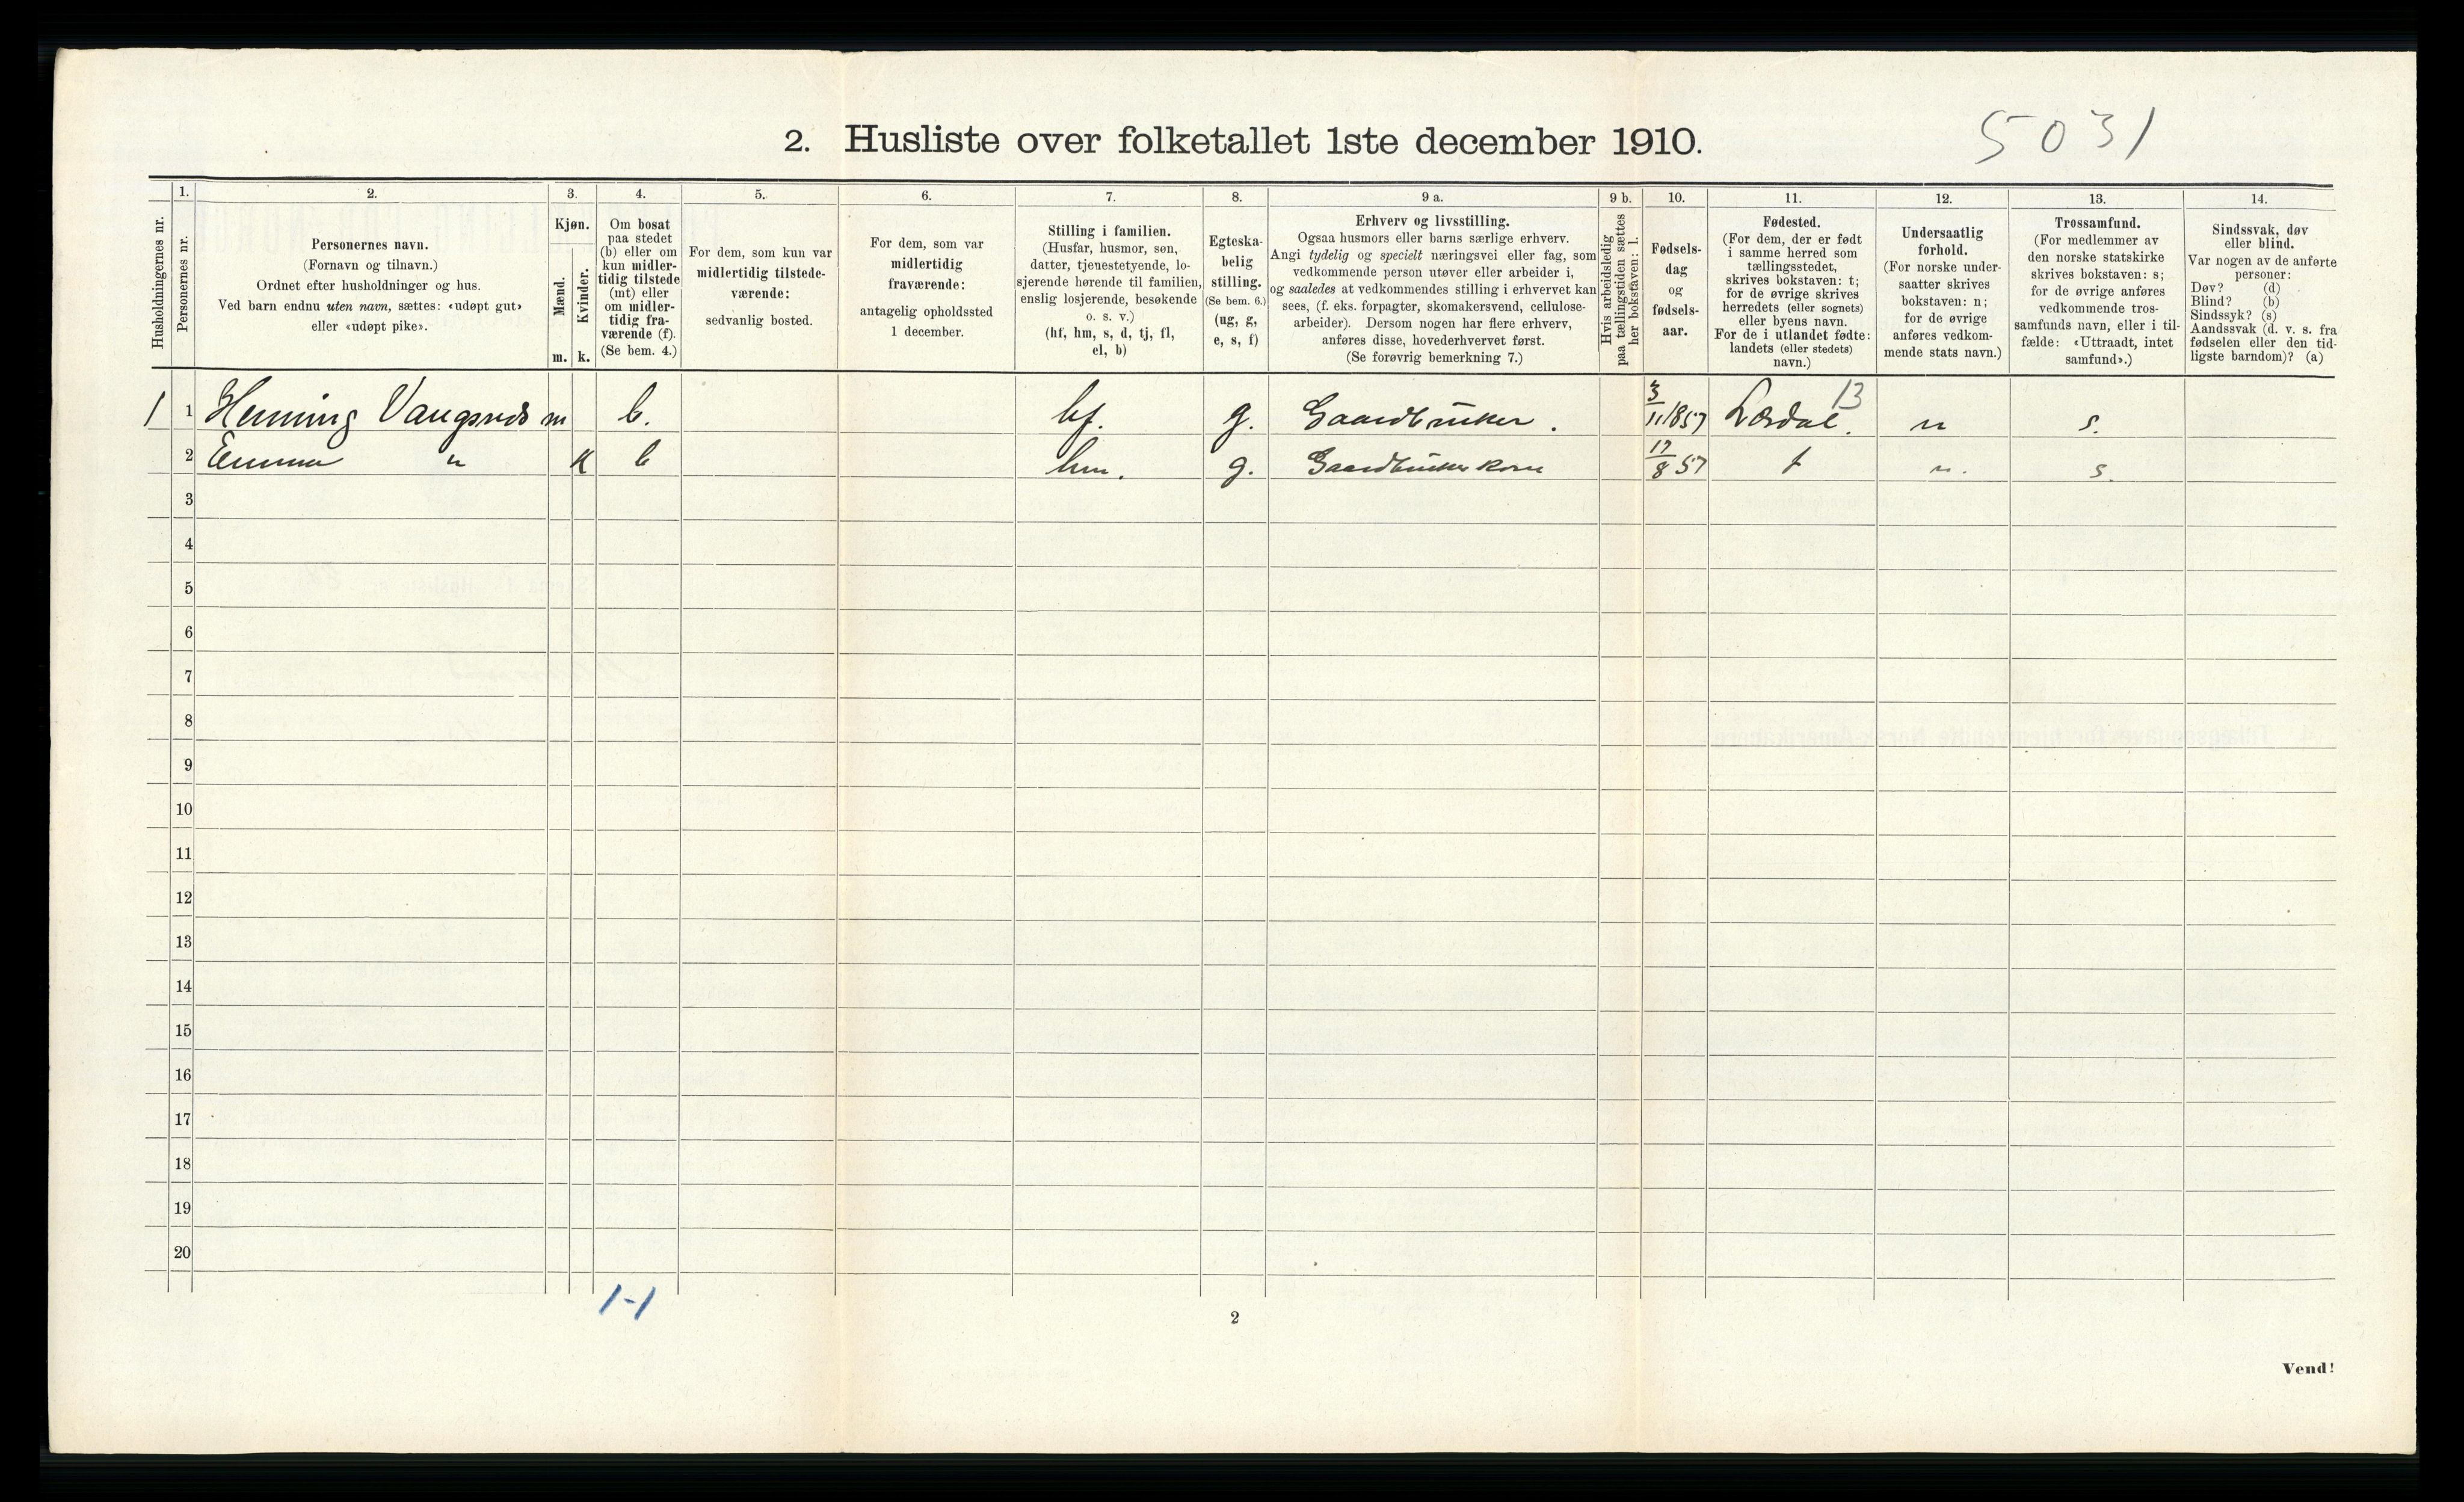 2. Husliste over folketallet 1ste december 1910.
5031
Husholdningernes nr.
1.
Personernes nr.
2.
Personernes navn.
(Fornavn og tilnavn.)
Ordnet efter husholdninger og hus.
Ved barn endnu uten navn, sættes: «udøpt gut»
eller «udøpt pike».
3.
Kjøn.
Mænd.
Kvinder.
m. k.
4.
Om bosat
paa stedet
(b) eller om
kun midler-
tidig tilstede
(mt) eller
om midler-
tidig fra-
værende (f).
(Se bem. 4.)
5.
For dem, som kun var
midlertidig tilstede-
værende:
sedvanlig bosted.
6.
For dem, som var
midlertidig
fraværende:
antagelig opholdssted
1 december.
7.
Stilling i familien.
(Husfar, husmor, søn,
datter, tjenestetyende, lo-
sjerende hørende til familien,
enslig losjerende, besøkende
o. s. v.)
(hf, hm, s, d, tj, fl,
el, b)
8.
Egteska-
belig
stilling.
(Se bem. 6.)
(ug, g,
e, s, f)
9 a.
Erhverv og livsstilling.
Ogsaa husmors eller barns særlige erhverv.
Angi tydelig og specielt næringsvei eller fag, som
vedkommende person utøver eller arbeider i,
og saaledes at vedkommendes stilling i erhvervet kan
sees, (f. eks. forpagter, skomakersvend, cellulose-
arbeider). Dersom nogen har flere erhverv,
anføres disse, hovederhvervet først.
(Se forøvrig bemerkning 7.)
9 b.
Hvis arbeidsledig
paa tællingstiden sættes
her bokstaven: l.
10.
Fødsels-
dag
og
fødsels-
aar.
11.
Fødested.
(For dem, der er født
i samme herred som
tællingsstedet,
skrives bokstaven: t;
for de øvrige skrives
herredets (eller sognets)
eller byens navn.
For de i utlandet fødte:
landets (eller stedets)
navn.)
12.
Undersaatlig
forhold.
(For norske under-
saatter skrives
bokstaven: n;
for de øvrige
anføres vedkom-
mende stats navn.)
13.
Trossamfund.
(For medlemmer av
den norske statskirke
skrives bokstaven: s;
for de øvrige anføres
vedkommende tros-
samfunds navn, eller i til-
fælde: «Uttraadt, intet
samfund».)
14.
Sindssvak, døv
eller blind.
Var nogen av de anførte
personer:
Døv? (d)
Blind? (b)
Sindssyk? (s)
Aandssvak (d. v. s. fra
fødselen eller den tid-
ligste barndom)? (a)
1 1 Henning Vangsnes m b. hf. g. Gaardbruker. 3/11 1857 Lærdal. 13 n s.
2 Emma " k b hm. g. Gaardbrukerkone 17/8 57 t n. s.
3
4
5
6
7
8
9
10
11
12
13
14
15
16
17
18
19
20
1-1
2
Vend!